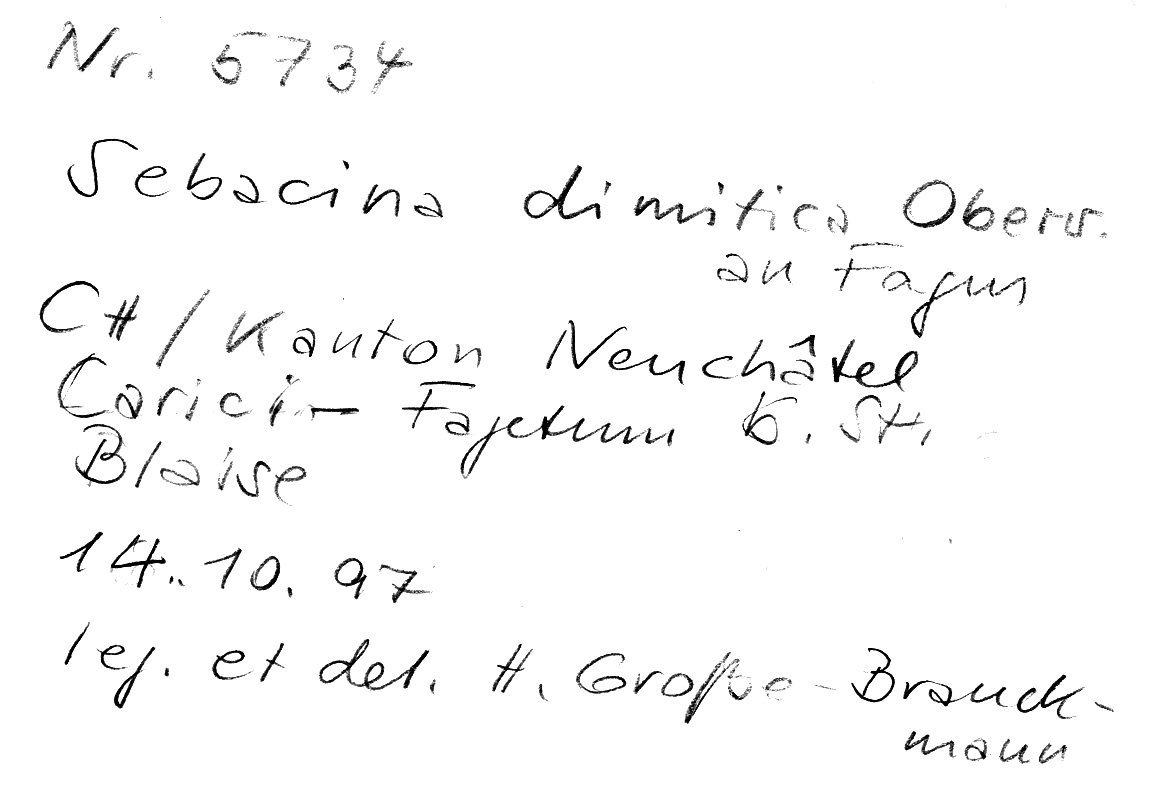 Nr. 5734
Sebacina dimitica Oberw.
an Fagus
CH / Kanton Neuchâtel
Carici-Fagetum b. St.
Blaise
14. 10. 97
leg. et det. H. Große-Brauck-
mann